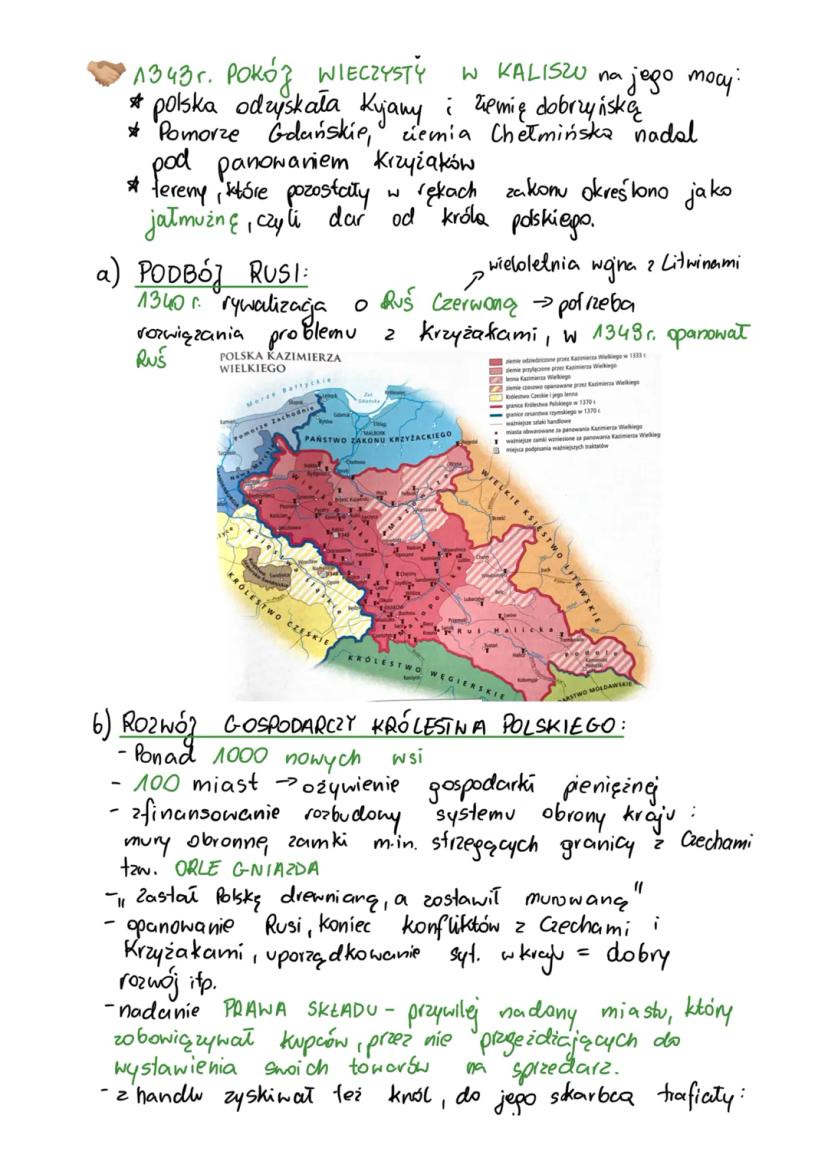 1343r. POKÓJ WIECZYSTY W KALISZU na jego mocy:
* polska odzyskała Kujawy i ziemię dobrzyńską
* Pomorze Gdańskie, ziemia Chełmińska nadal
pod panowaniem Krzyżaków
* tereny, które pozostały w rękach zakonu określono jako
jałmużnę, czyli dar od króla polskiego.
wieloletnia wojna z Litwinami
a) PODBÓJ RUSI:
1340 r. rywalizacja o Ruś Czerwoną → potrzeba
rozwiązania problemu z Krzyżakami, w 1349r. opanował
Ruś
POLSKA KAZIMIERZA
WIELKIEGO
ziemie odziedziczone przez Kazimierza Wielkiego w 1333 r.
ziemie przyłączone przez Kazimierza Wielkiego
lenna Kazimierza Wielkiego
ziemie czasowo opanowane przez Kazimierza Wielkiego
Królestwo Czeskie i jego lenna
granice Królestwa Polskiego w 1370 r.
granice cesarstwa rzymskiego w 1370 r.
ważniejsze szlaki handlowe
miasta obwarowane za panowania Kazimierza Wielkiego
ważniejsze zamki wzniesione za panowania Kazimierza Wielkieg
miejsca podpisania ważniejszych traktatów
Morze Bałtyckie
Zat. Gdańska
Pomorze Zachodnie
MALBORK
PAŃSTWO ZAKONU KRZYŻACKIEGO
WIELKIE KSIĘSTWO LITEWSKIE
Mazowsze
Warszawa
KRAKÓW
Lwów
Ruś Halicka
Podole
KRÓLESTWO CZESKIE
KRÓLESTWO WĘGIERSKIE
ARSTWO MOŁDAWSKIE
b) ROZWÓJ GOSPODARCZY KRÓLESTWA POLSKIEGO:
- Ponad 1000 nowych wsi
- 100 miast → ożywienie gospodarki pieniężnej
- zfinansowanie rozbudowy systemu obrony kraju :
mury obronne, zamki m.in. strzegących granicy z Czechami
tzw. ORLE GNIAZDA
- „Zastał Polskę drewnianą, a zostawił murowaną"
- opanowanie Rusi, koniec konfliktów z Czechami i
Krzyżakami, uporządkowanie syt. w kraju = dobry
rozwój itp.
- nadanie PRAWA SKŁADU - przywilej nadany miastu, który
zobowiązywał kupców, przez nie przejeżdżających do
wystawienia swoich towarów na sprzedarz.
- z handlu zyskiwał też król, do jego skarbca trafiały: